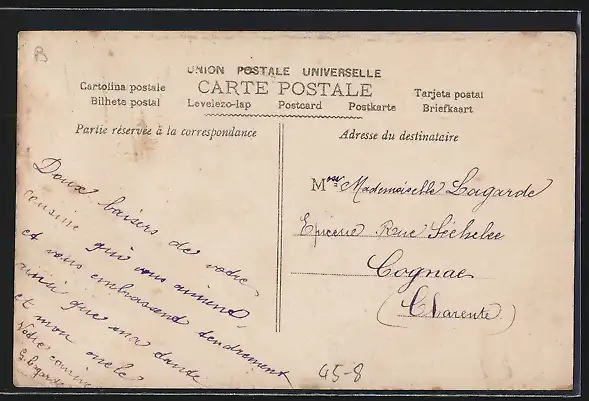 B
UNION POSTALE UNIVERSELLE
CARTE POSTALE
Cartolina postale
Tarjeta postal
Bilhete postal
Levelezo-lap
Postcard
Postkarte
Briefkaart
Partie réservée à la correspondance
Adresse du destinataire
Doux baisers de votre
cousine qui vous aiment
et vous embrassent tendrement
ainsi que ma tante
et mon oncle
Votre cousine
Lagarde
Mademoiselle Lagarde
Epicerie Rue
Cognac
(Charente)
45-8